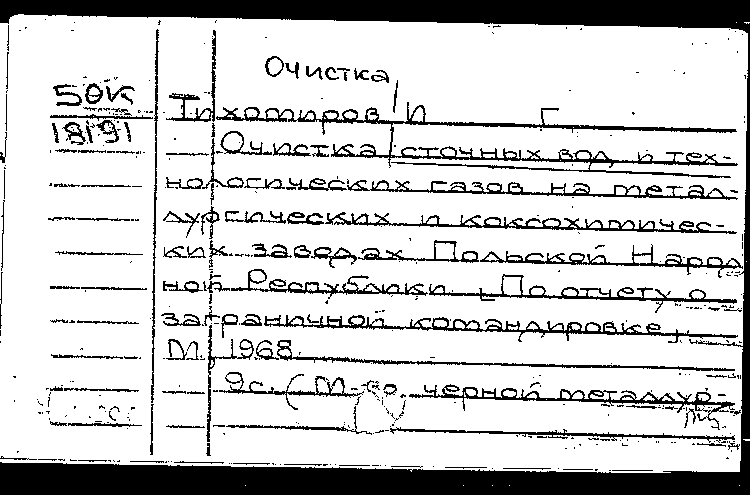 Очистка
БОК
18191
Тихомиров И Г
Очистка сточных вод и тех-
нологических газов на метал-
лургических и коксохимичес-
ких заводах Польской Народ
ной Республики. [По отчету о
заграничной командировке].
М, 1968.
9с. (М-во черной металлур-